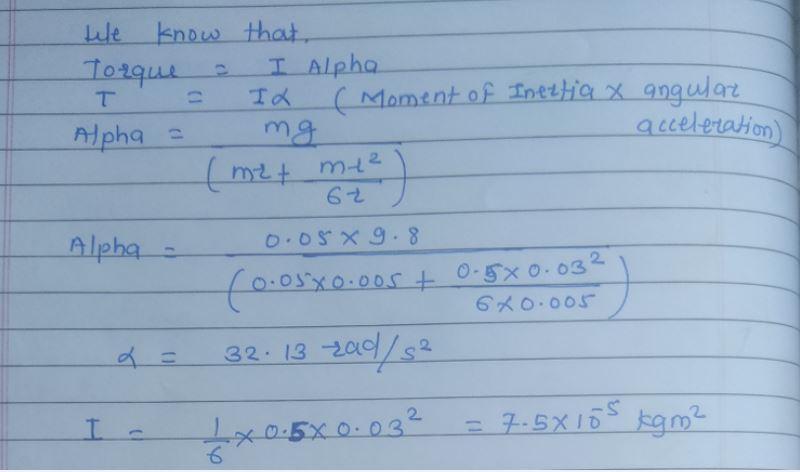 We know that.
Torque = I Alpha
T = Iα (Moment of Inertia x angular acceleration)
Alpha = mg / (mr + ml² / 6r)
Alpha = 0.05 x 9.8 / (0.05x0.005 + 0.5x0.03² / 6x0.005)
α = 32.13 rad/s²
I = 1/6 x 0.5 x 0.03² = 7.5x10⁻⁵ kgm²